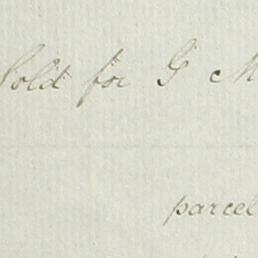 Sold for G M
parcel